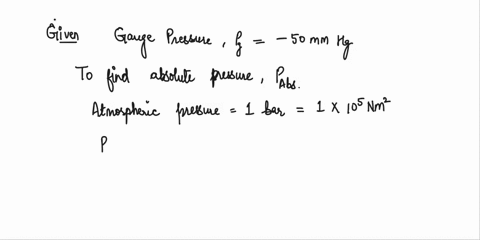 Given Gauge Pressure, Pg = -50 mm Hg
To find absolute pressure, PAbs.
Atmospheric pressure = 1 bar = 1 × 10⁵ Nm²
P